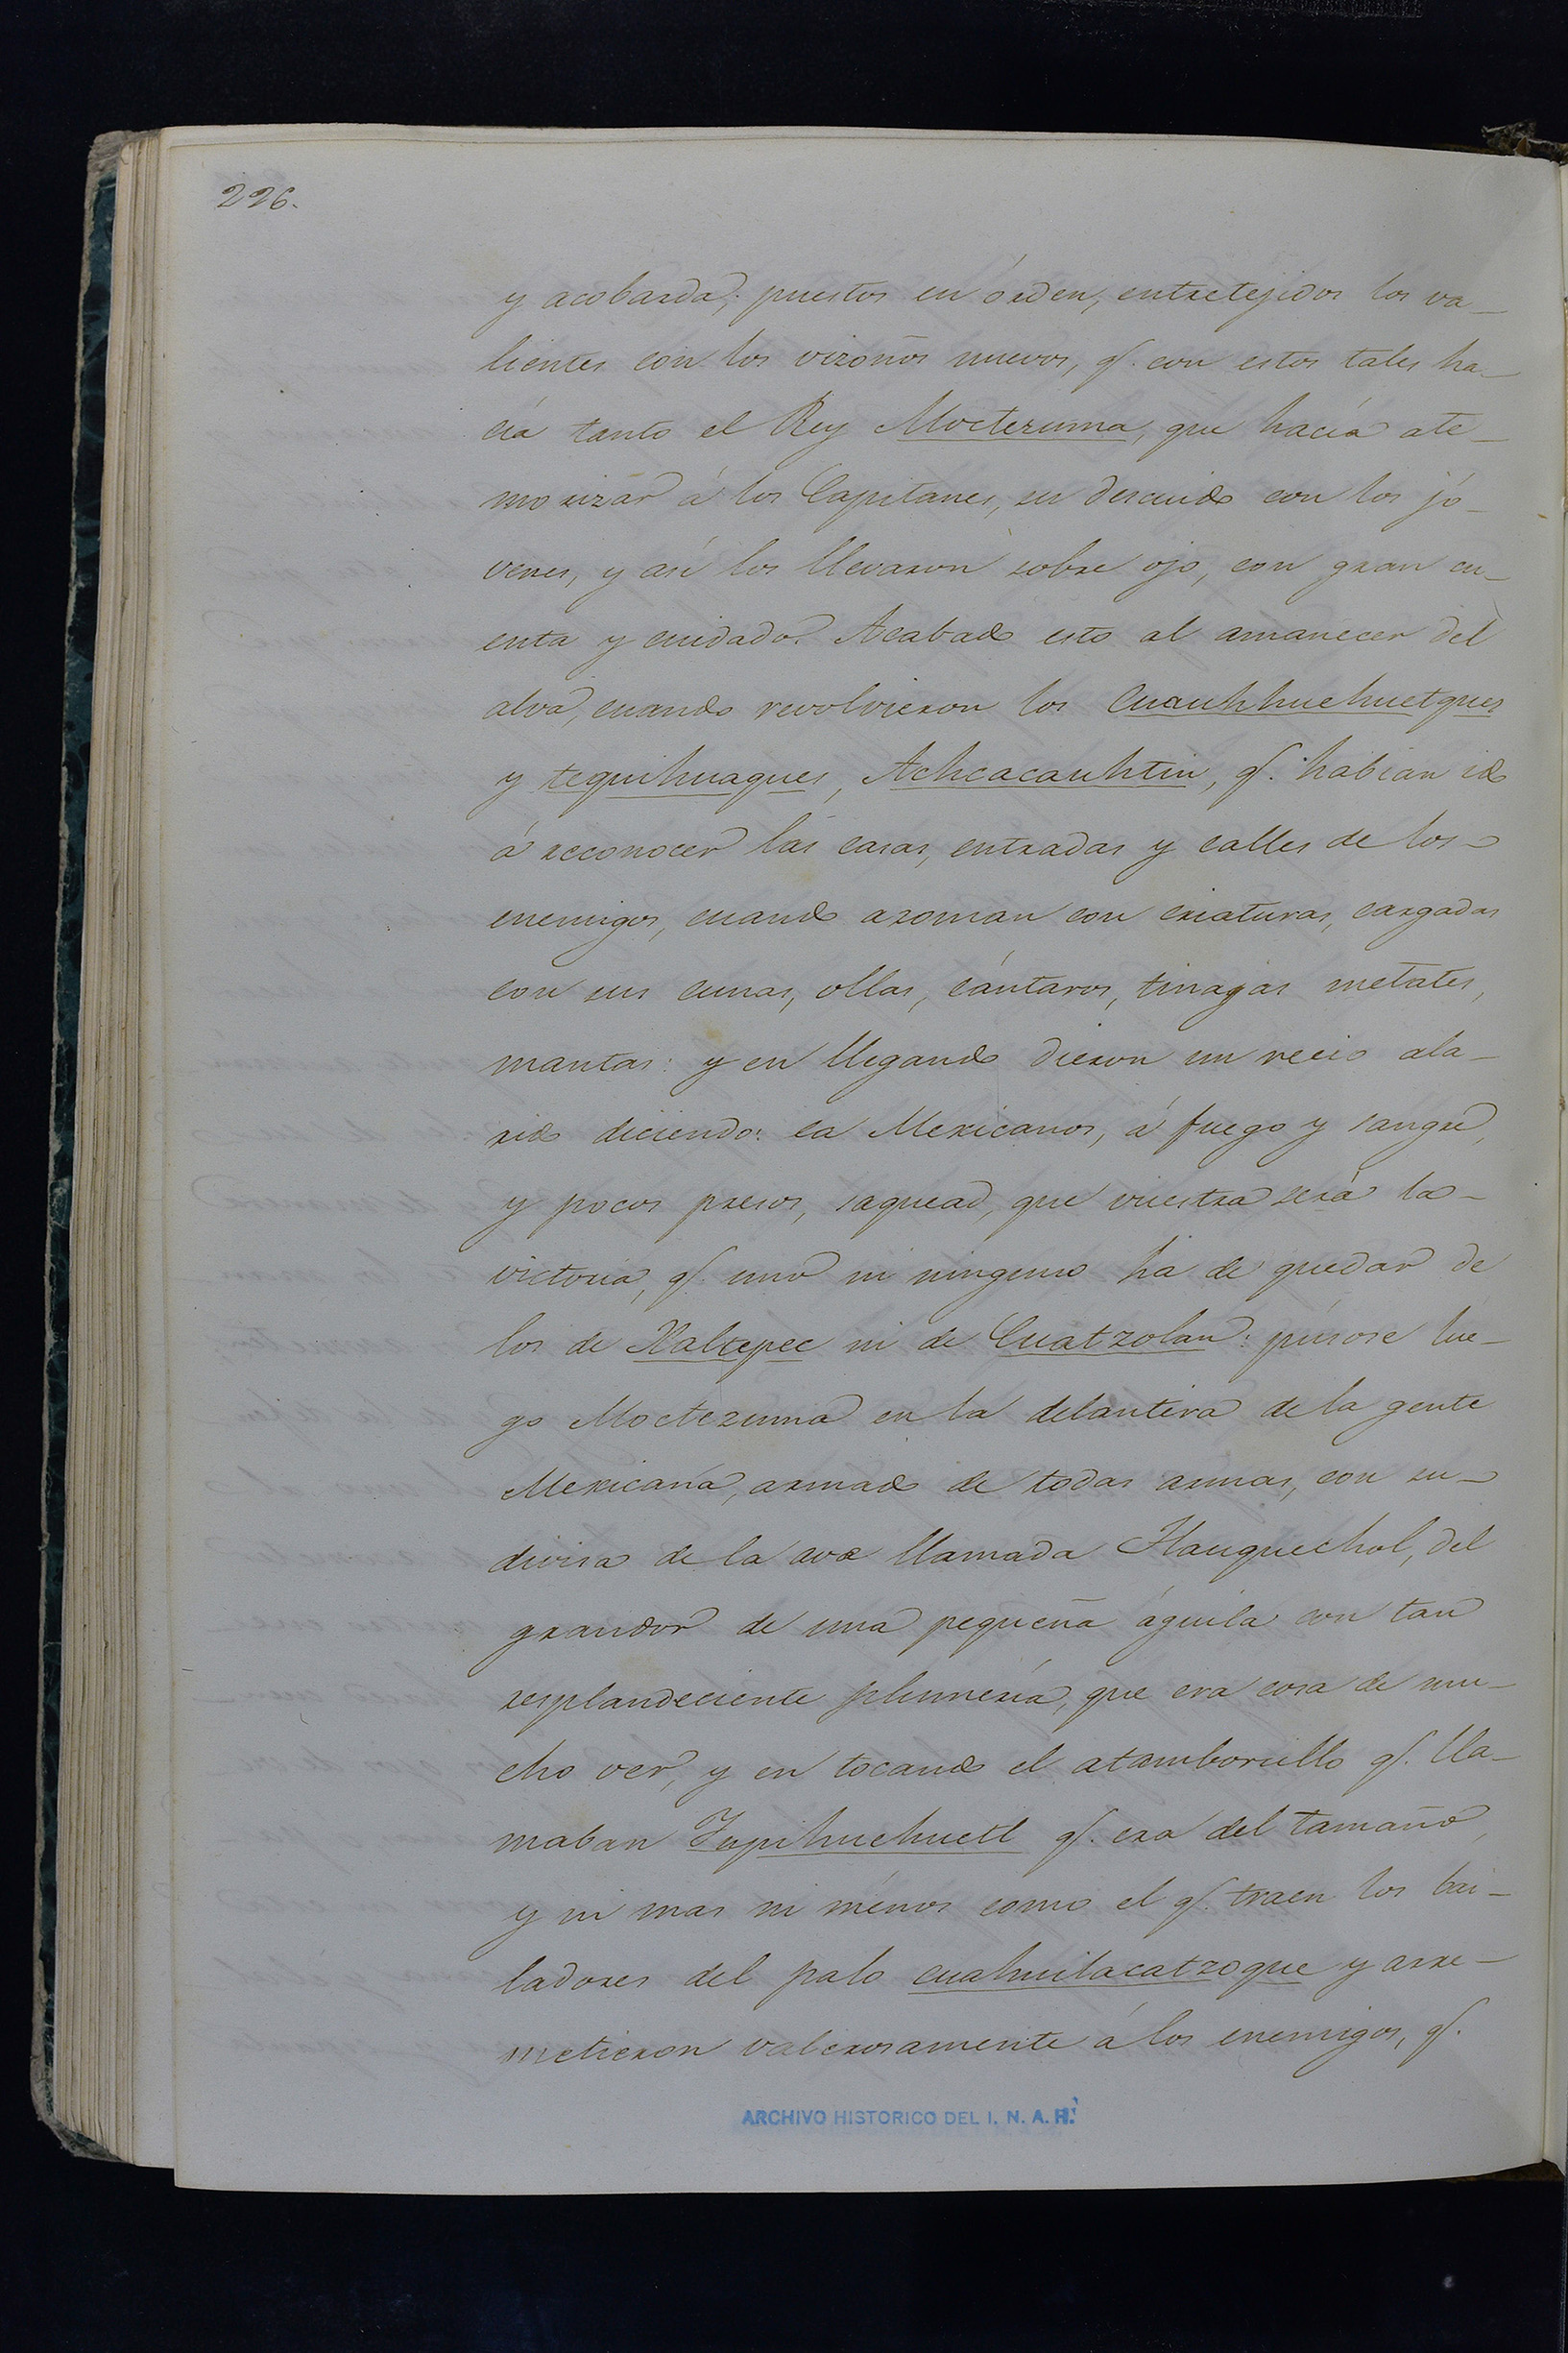 226.
y acobarda; puestos en órden, entretejidos los va-
lientes con los vizoños nuevos, q. con estos tales ha-
cía tanto el Rey Moctezuma, que hacía ate-
morizar á los Capitanes, su descuido con los jó-
venes, y así los llevaron sobre ojo, con gran cu-
enta y cuidado. Acabado esto al amanecer del
alva, cuando revolvieron los Cuauhhuehuetques
y tequihuaques, Achcacauhtin, q. habían ido
á reconocer las casas, entradas y calles de los-
enemigos, cuando asoman con criaturas, cargadas
con sus cunas, ollas, cántaros, tinajas metates,
mantas: y en llegando dieron un recio ala-
rido diciendo: ea Mexicanos, á fuego y sangre,
y pocos presos, saquead, que vuestra será la-
victoria, q. uno ni ninguno ha de quedar de
los de Xaltepec ni de Cuatzolan: púsose lue-
go Moctezuma en la delantera de la gente
Mexicana, armado de todas armas, con su-
divisa de la ave llamada Tlauquechol, del
grandor de una pequeña águila con tan
resplandeciente plumería, que era cosa de mu-
cho ver, y en tocando el atamborcillo q. lla-
maban Yopihuehuetl q. era del tamaño,
y ni mas ni ménos como el q. traen los bai-
ladores del palo cuahuilacatzoque y arre-
metieron valerosamente á los enemigos, q.
ARCHIVO HISTORICO DEL I. N. A. H.